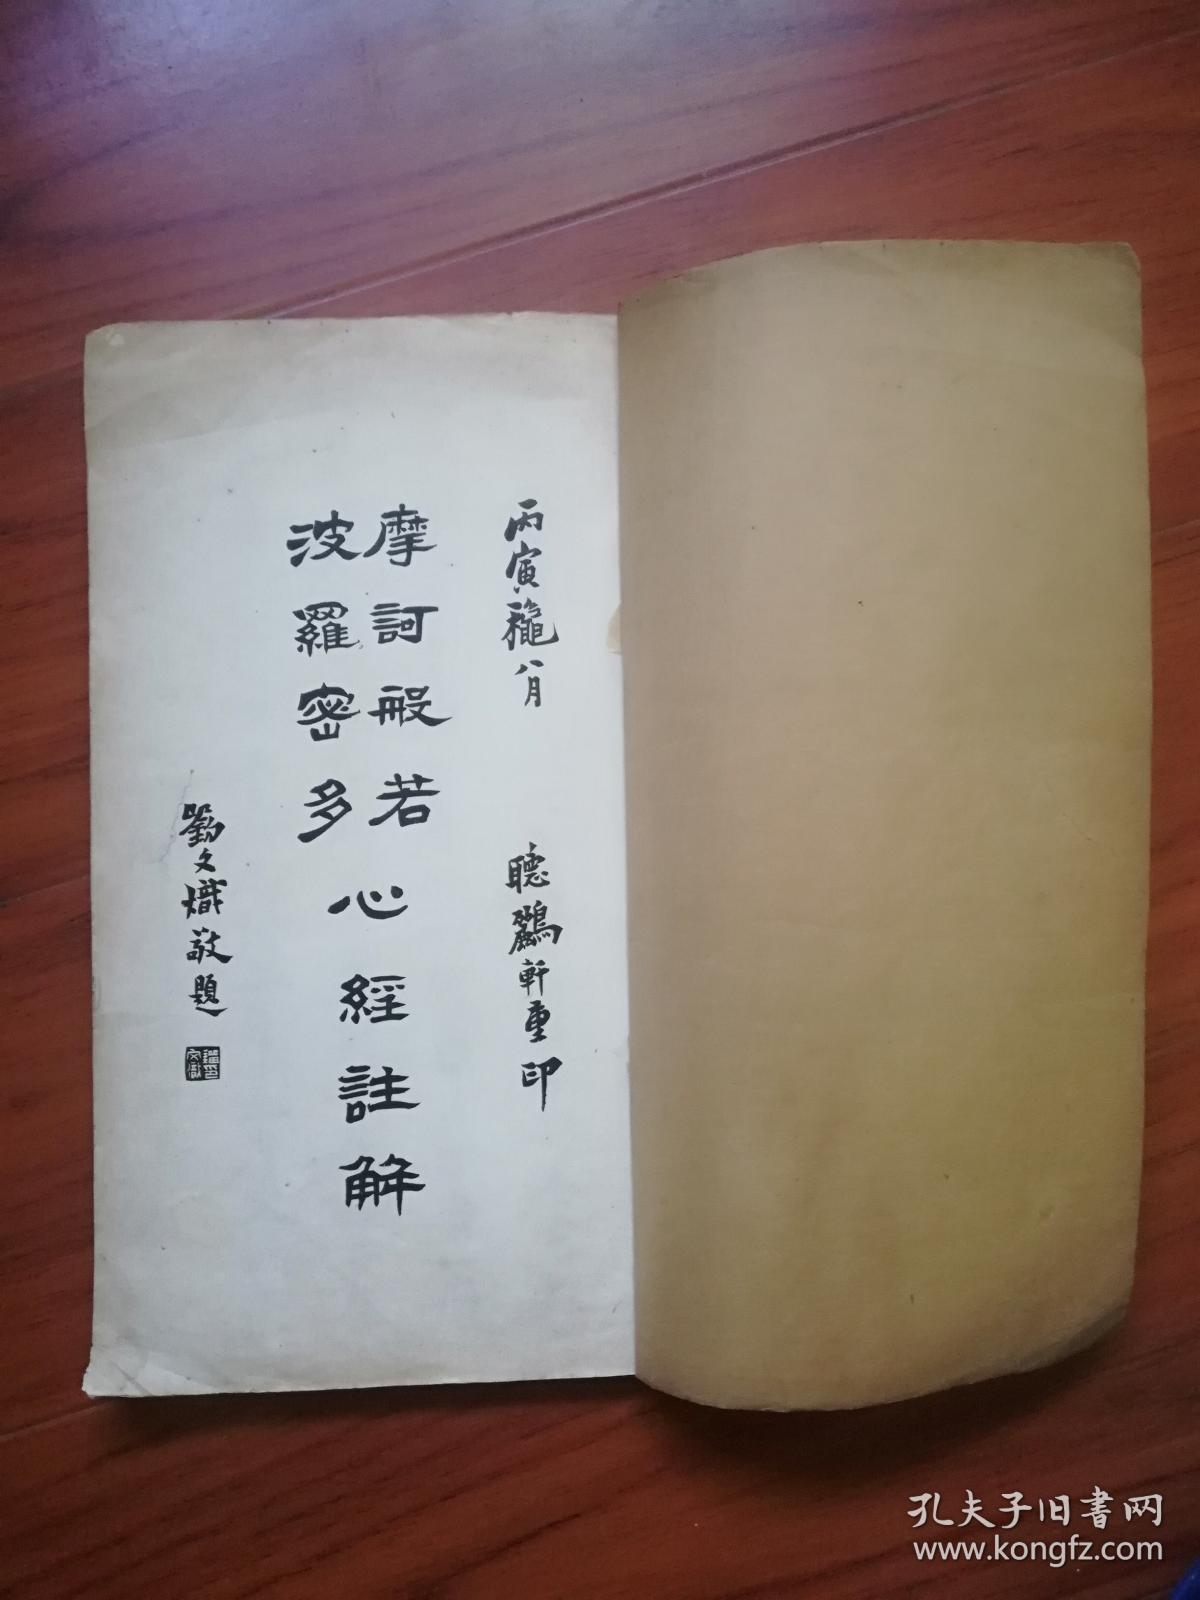 丙寅龝八月 聽鸝軒重印
摩訶般若
波羅密多
心經註解
劉文熾敬題
孔夫子旧书网
www.kongfz.com